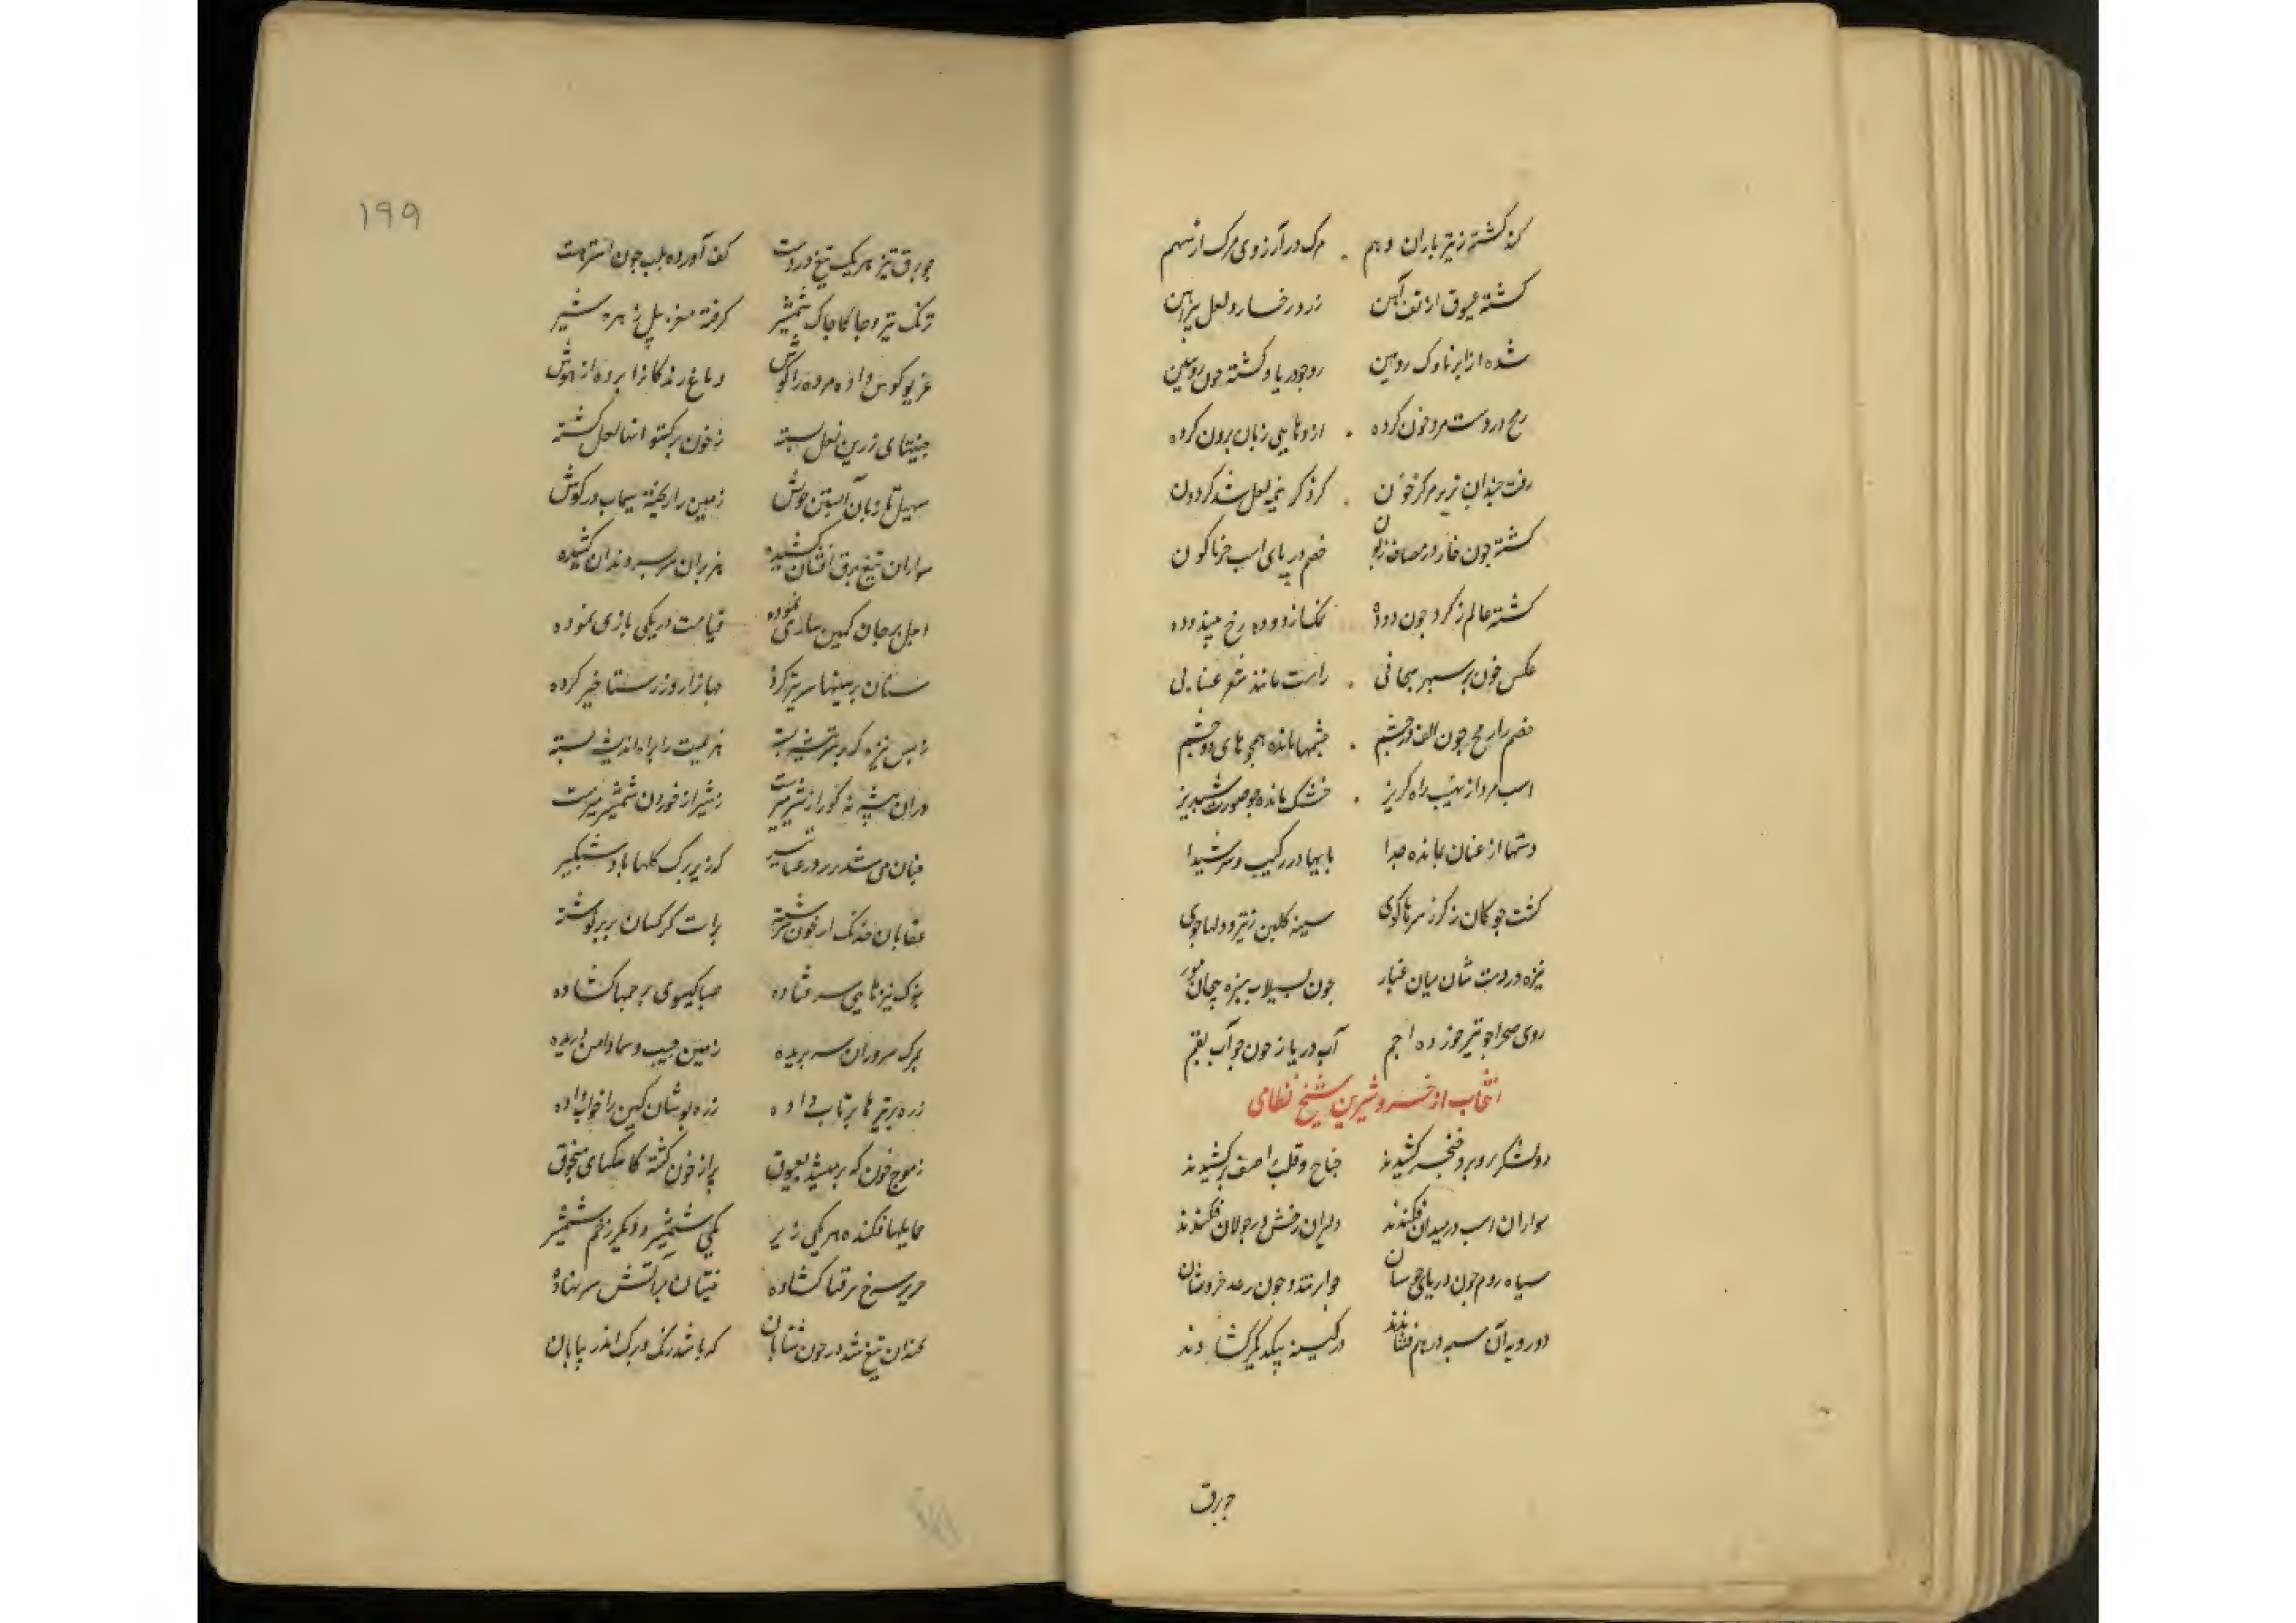 کند کشته ز تیر باران وهم . مرک در آرزوی مرک از سهم
کشته عیوق از تف آهن زرد رخسار و لعل پیراهن
شده از ابر ناوک روهین روی دریا و کشته چون روهین
رمح در دست مرد خون کرده . اژدهایی زبان برون کرده
رفت چندان بزیر مرکز خون . کز کریز لعل شد کردون
کشته چون خار در مصاف زبون خصم در پای اسب خرناکون
کشته عالم ز کرد چون دوده رخ
عکس خون بر سپهر سحابی . راست مانند شعر عنابی
خصم را رمح چون الف در چشم . چشمها مانده همچو های دو چشم
اسب مرد از نهیب راه کریز . خشک مانده چو صورت شبدیز
دستها از عنان بمانده جدا پایها در رکیب و سر شیدا
کشت چوکان ز کرز سرها کوی سینه کلبن ز تیر و دلها جوی
نیزه در دست شان میان غبار چون بسیلاب نیزه پیچان مور
روی صحرا چو تیر خورده اجم آب دریا ز خون چو آب بقم
انتخاب از خسرو شیرین شیخ نظامی
دو لشکر روبرو خنجر کشیدند جناح و قلب را صف برکشیدند
سواران اسب در میدان فکندند دلیران رخش در جولان فکندند
سپاه روم چون دریای جوشان چو ابر تند و چون رعد خروشان
دو رویه آن سپه در هم فشاندند در کینه بیکدیکر کشادند
چو برق
۱۹۹
چو برق تیز هر یک تیغ در دست کف آورده بلب چون اشتر مست
ترنک تیر و چاکا چاک شمشیر کرفته مغز پیل زهره شیر
غریو کوس داده مرده را کوش دماغ زندکانرا برده از هوش
جنیبتهای زرین نعل بسته ز خون برکستوانها لعل کشته
سهیل تازیان آتشین جوش زمین را ریخته سیماب در کوش
سواران تیغ برق افشان کشیده هزبران سربسر دندان کشیده
اجل بر جان کمین سازی نموده قیامت در یکی بازی نموده
سنان بر سینها سر تیز کرده جهانرا روز رستاخیز کرده
ز بس نیزه که بر سر بیشه بسته هزیمت را براه اندیشه بسته
دران بیشه نه کور از شیر میرست نه شیر از خوردن شمشیر میرست
چنان می شد بزیر درعها تیر که زیر برک کلها باد شبکیر
عقابان خدنک از خون سرشته برات کرکسان بر پر نوشته
بنوک نیزهایی سر فتاده صبا کیسوی پرچمها کشاده
بمرک سروران سر بریده زمین جیب و سما دامن دریده
زره بر تیرها پرتاب داده زره پوشان کین را خواب داده
ز موج خون که بر میشد بعیوق پر از خون کشته طاسکهای منجوق
حمایلها فکنده هر یکی زیر یکی شمشیر و دیکر زخم شمشیر
حریر سرخ بیرقها کشاده نیستان بر آتش سر نهاده
نچندان تیغ شد در خون شتابان که باشد ریک و برک اندر بیابان